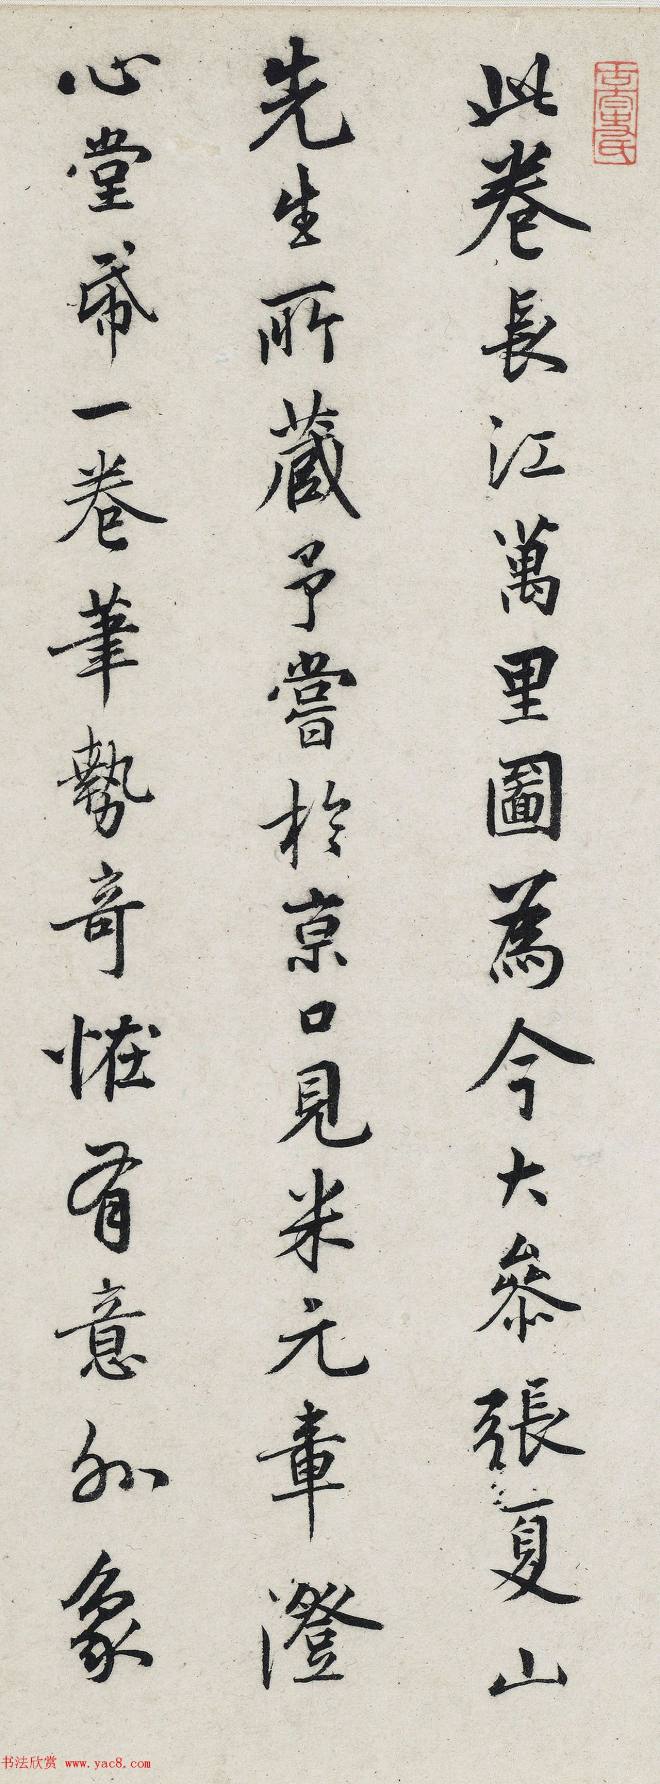 此卷長江萬里圖為今大參張夏山
先生所藏予嘗於京口見米元章澄
心堂帋一卷筆勢奇恠有意外象
书法欣赏 www.yac8.com